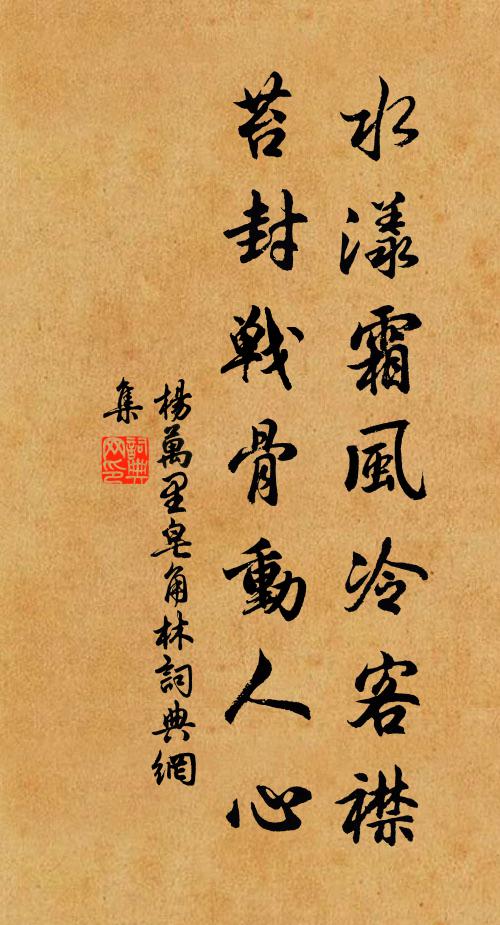 水漾霜風冷客襟
苔封戦骨動人心
楊萬里皂角林詞典網
集
詞典网印